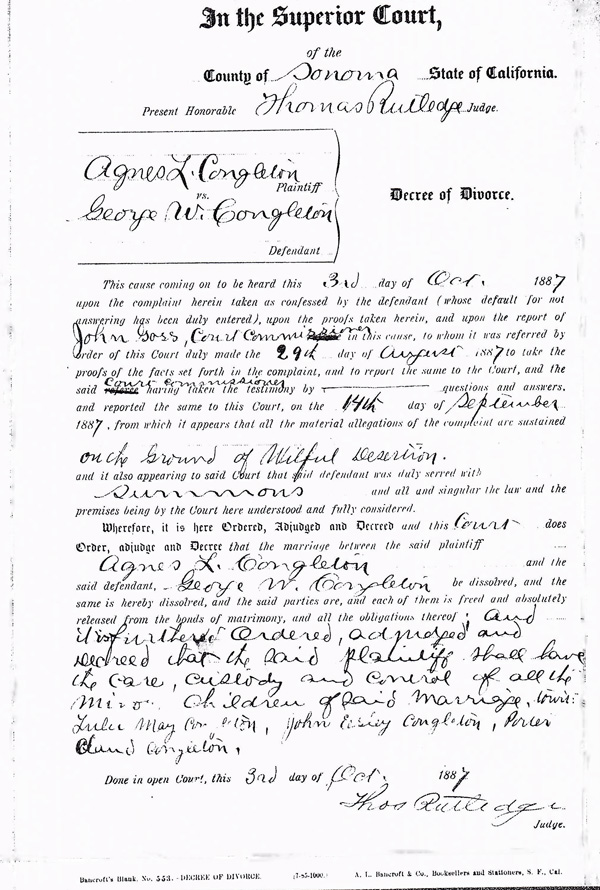 In the Superior Court,
of the
County of Sonoma State of California.
Present Honorable Thomas Rutledge Judge.
Agnes L. Congleton
Plaintiff
vs.
George W. Congleton
Defendant
Decree of Divorce.
This cause coming on to be heard this 3rd day of Oct. 1887
upon the complaint herein taken as confessed by the defendant (whose default for not
answering has been duly entered), upon the proofs taken herein, and upon the report of
John Goss, Court Commissioner in this cause, to whom it was referred by
order of this Court duly made the 29th day of August 1887 to take the
proofs of the facts set forth in the complaint, and to report the same to the Court, and the
said Court Commissioner referee having taken the testimony by questions and answers,
and reported the same to this Court, on the 14th day of September
1887, from which it appears that all the material allegations of the complaint are sustained
on the Ground of Wilful Desertion.
and it also appearing to said Court that said defendant was duly served with
Summons and all and singular the law and the
premises being by the Court here understood and fully considered.
Wherefore, it is here Ordered, Adjudged and Decreed and this Court does
Order, adjudge and Decree that the marriage between the said plaintiff
Agnes L. Congleton and the
said defendant, George W. Congleton be dissolved, and the
same is hereby dissolved, and the said parties are, and each of them is freed and absolutely
released from the bonds of matrimony, and all the obligations thereof; and
it is further Ordered, adjudged and
decreed that the said plaintiff shall have
the care, custody and control of all the
Minor Children of said Marriage, towit:
Lulu May Congleton, John Congleton, Porter
Claud Congleton.
Done in open Court, this 3rd day of Oct. 1887
Thos Rutledge
Judge.
Bancroft's Blank, No. 553.-DECREE OF DIVORCE. (7-85-1000.) A. L. Bancroft & Co., Booksellers and Stationers, S. F., Cal.